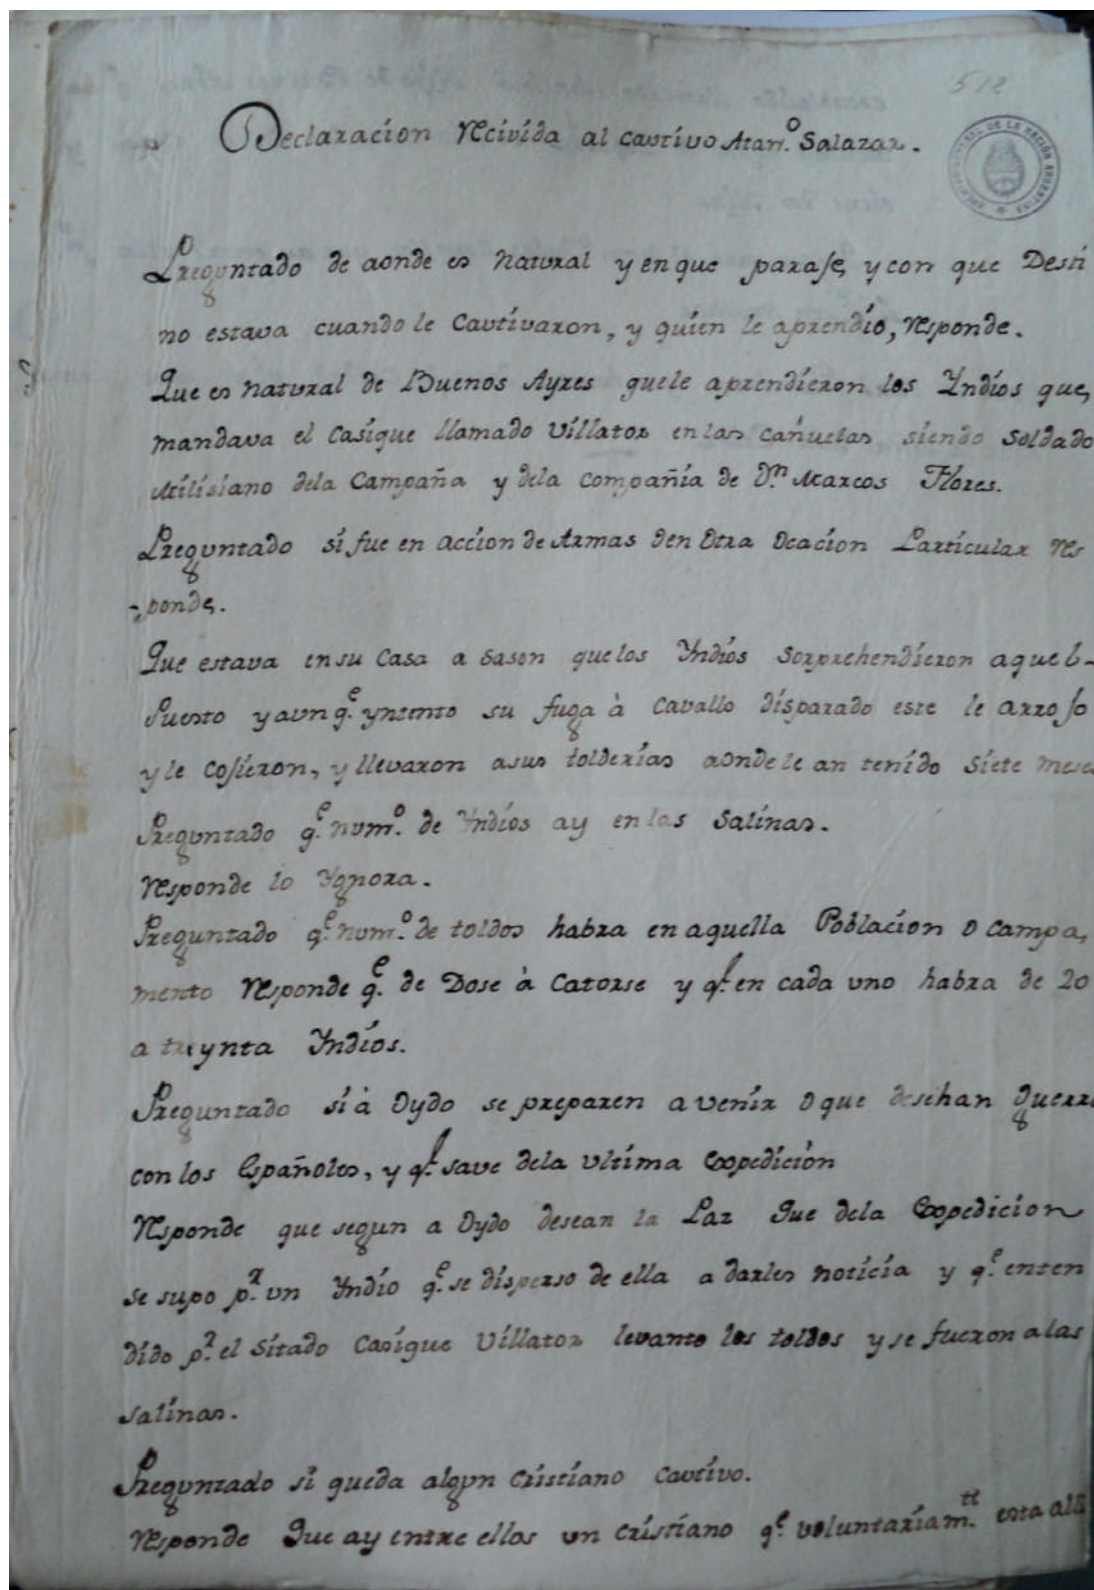 512
Declaracion Recivida al cautivo Man.º Salazar.
ARCHIVO GRAL. DE LA NACIÓN ARGENTINA
Preguntado de aonde es Natural y en que paraje, y con que Desti
no estava cuando le Cautivaron, y quien le aprendio, Responde.
Que es Natural de Buenos Ayres que le aprendieron los Yndios que,
mandava el Casique llamado Villator en las Cañuelas siendo Soldado
Milisiano dela Campaña y dela Compañia de D.n Marcos Flores.
Preguntado si fue en accion de Armas o en Otra Ocacion Particular Res
-ponde.
Que estava en su Casa a Sason que los Yndios Sorprehendieron aquel-
Puesto y aun q.e yntento su fuga à Cavallo disparado este le arrojo
y le Cojieron, y llevaron a sus tolderias aonde le an tenido Siete mese
Preguntado q.e num.o de Yndios ay en las Salinas.
Responde lo Ygnora.
Preguntado q.e num.o de toldos habra en aquella Poblacion o Campa,
mento Responde q.e de Dose à Catorse y q.e en cada uno habra de 20
a treynta Yndios.
Preguntado si à Oydo se preparen a venir o que desehan Guerr
con los Españoles, y q.e save dela ultima Expedición
Responde que segun a Oydo desean la Paz Que dela Expedicion
se supo p.r un Yndio q.e se disperso de ella a darles noticia y q.e enten
dido p.r el Sitado Casique Villator levanto los toldos y se fueron a las
Salinas.
Preguntado si queda algun Cristiano Cautivo.
Responde Que ay entre ellos un Cristiano q.e voluntariam.te esta alli